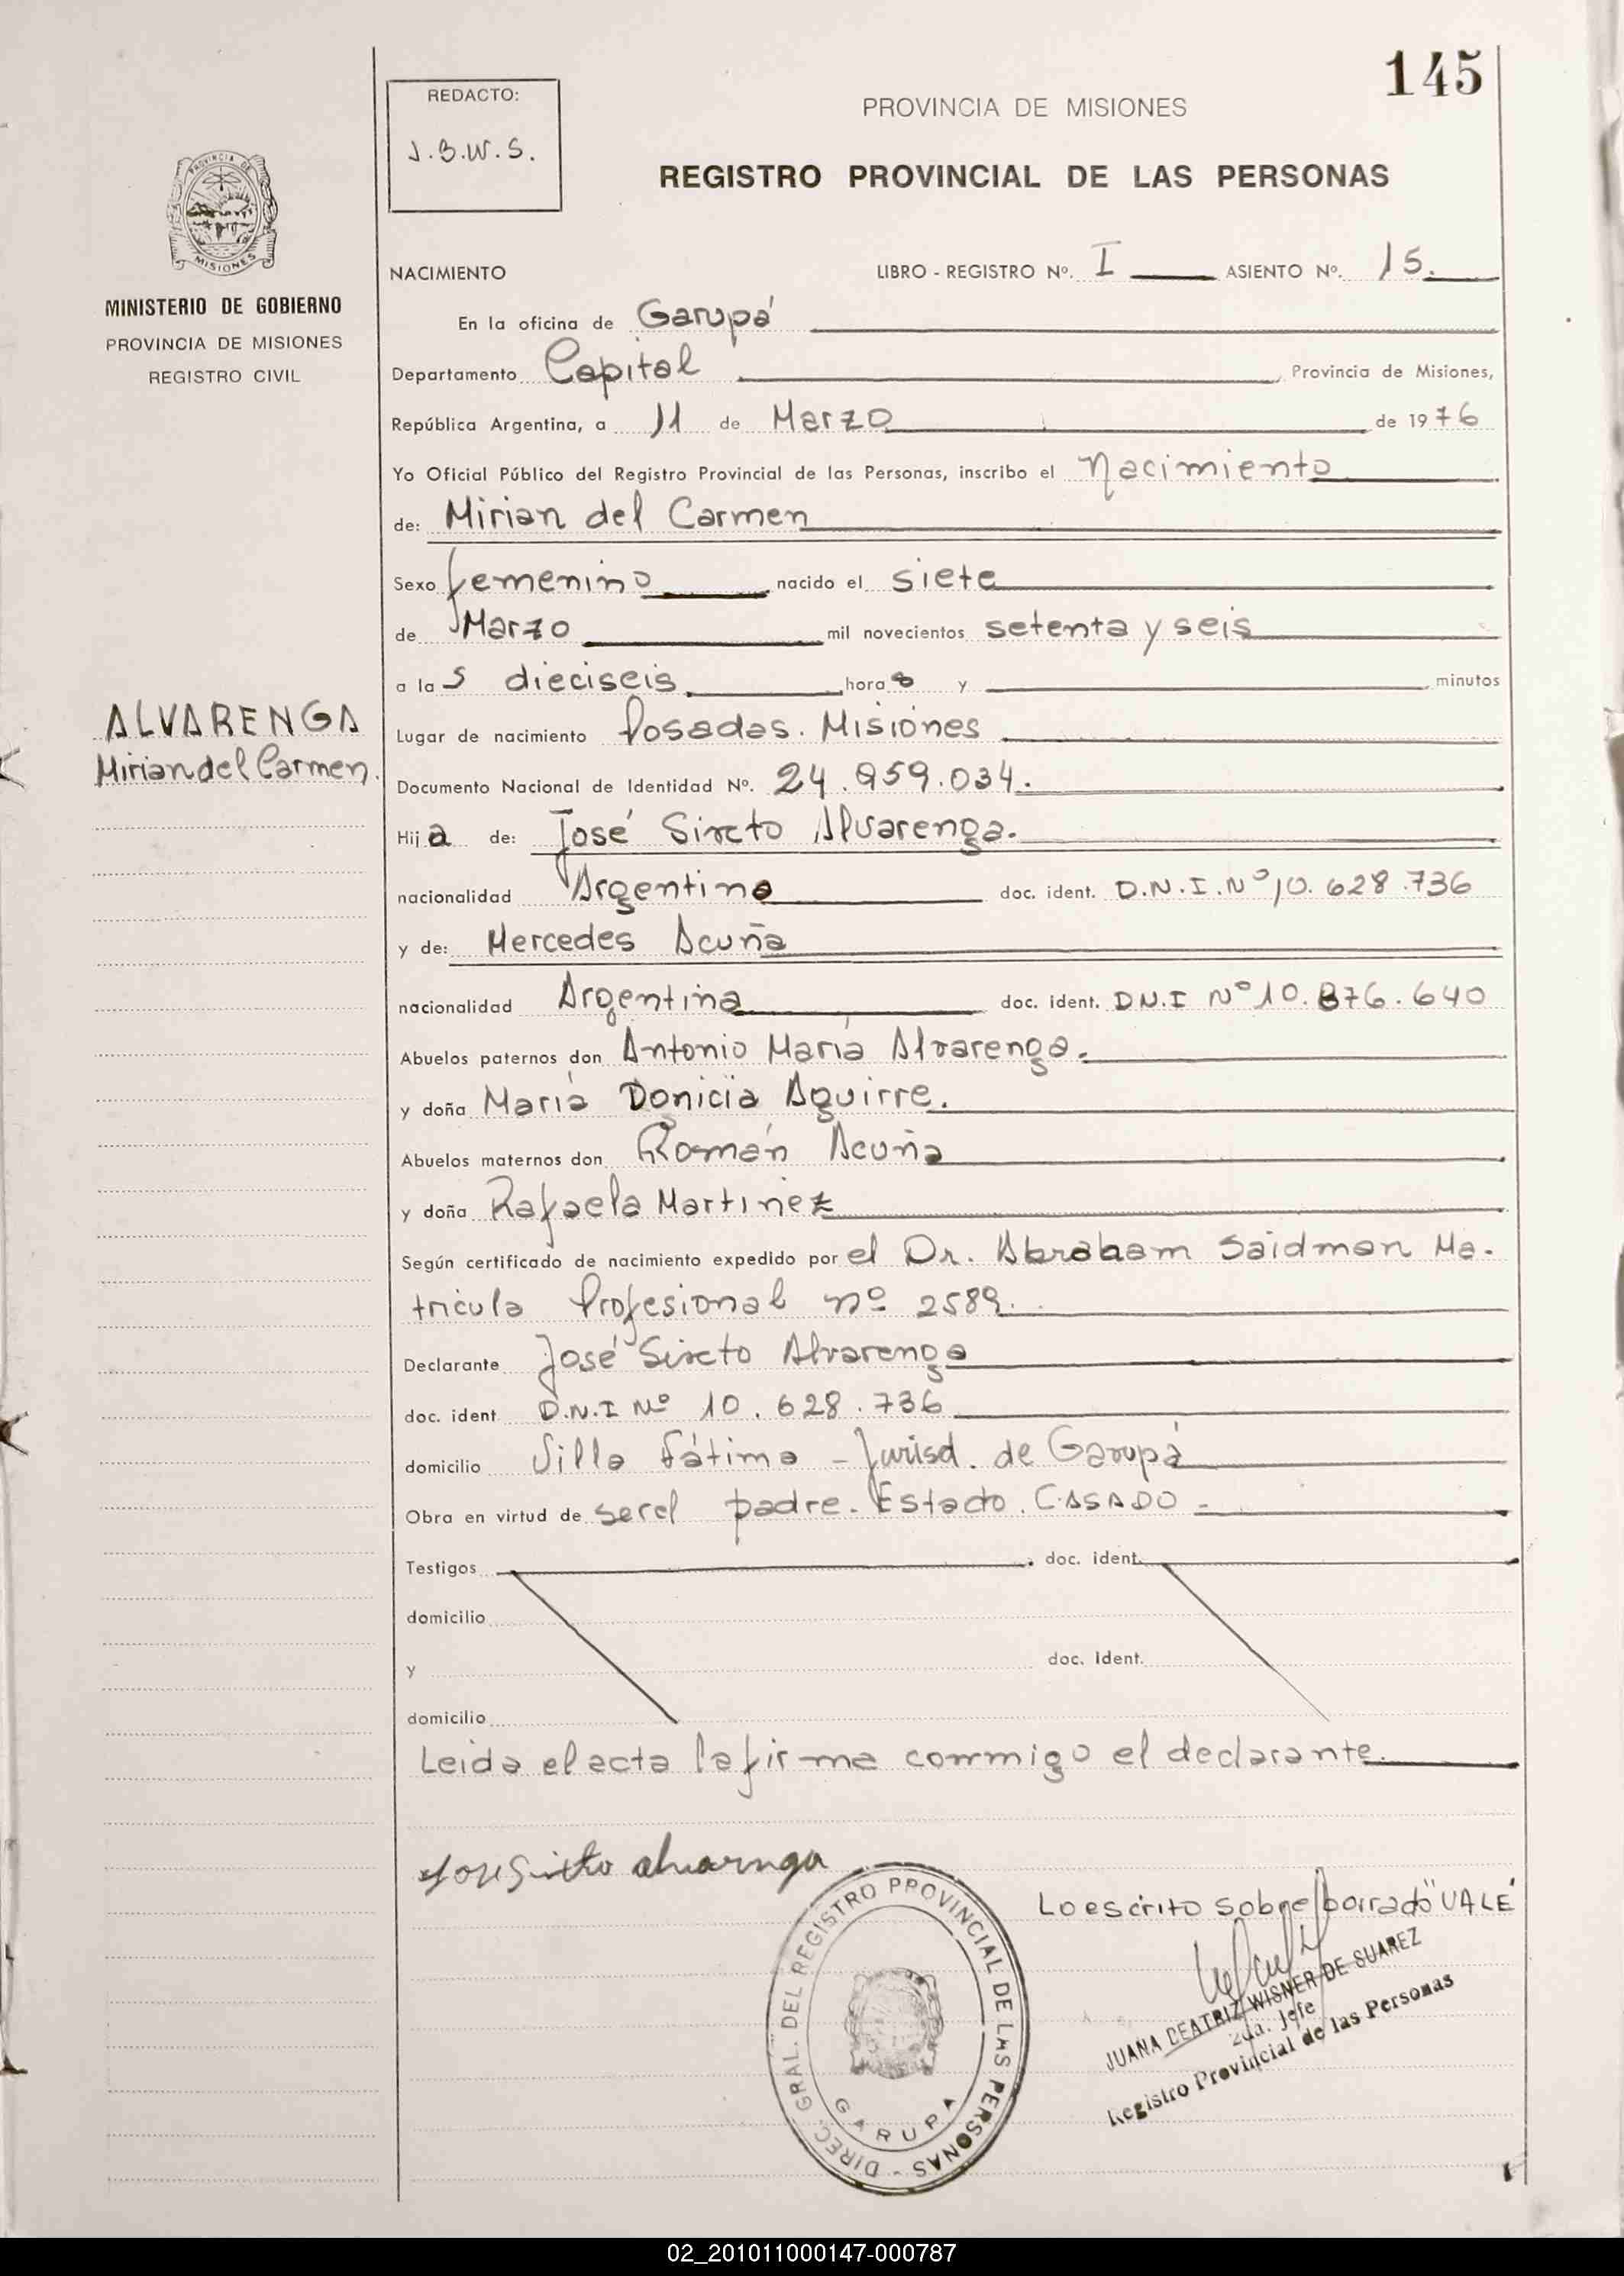 145
REDACTO:
J.B.W.S.
PROVINCIA DE MISIONES
REGISTRO PROVINCIAL DE LAS PERSONAS
PROVINCIA DE
MISIONES
MINISTERIO DE GOBIERNO
PROVINCIA DE MISIONES
REGISTRO CIVIL
NACIMIENTO LIBRO - REGISTRO Nº. I ASIENTO Nº. 15.
En la oficina de Garupá
Departamento Capital Provincia de Misiones,
República Argentina, a 11 de Marzo de 1976
Yo Oficial Público del Registro Provincial de las Personas, inscribo el Nacimiento
de: Mirian del Carmen
Sexo femenino nacido el siete
de Marzo mil novecientos setenta y seis
a las dieciseis horas y minutos
ALVARENGA
Mirian del Carmen.
Lugar de nacimiento Posadas. Misiones
Documento Nacional de Identidad Nº. 24.959.034.
Hija de: José Sixto Alvarenga.
nacionalidad Argentino doc. ident. D.N.I. Nº 10.628.736
y de: Mercedes Acuña
nacionalidad Argentina doc. ident. D.N.I Nº 10.876.640
Abuelos paternos don Antonio María Alvarenga.
y doña María Donicia Aguirre.
Abuelos maternos don Román Acuña
y doña Rafaela Martinez
Según certificado de nacimiento expedido por el Dr. Abraham Saidman Ma-
tricula Profesional nº 2589.
Declarante José Sixto Alvarenga
doc. ident. D.N.I Nº 10.628.736
domicilio Villa Fátima - Jurisd. de Garupá
Obra en virtud de ser el padre. Estado. CASADO -
Testigos doc. ident.
domicilio
y doc. ident.
domicilio
Leida el acta la firma conmigo el declarante.
Jose Sixto alvarenga
Lo escrito sobre borrado "VALE"
DIREC. GRAL. DEL REGISTRO PROVINCIAL DE LAS PERSONAS -
GARUPA
JUANA BEATRIZ WISNER DE SUAREZ
2da. Jefe
Registro Provincial de las Personas
02_201011000147-000787